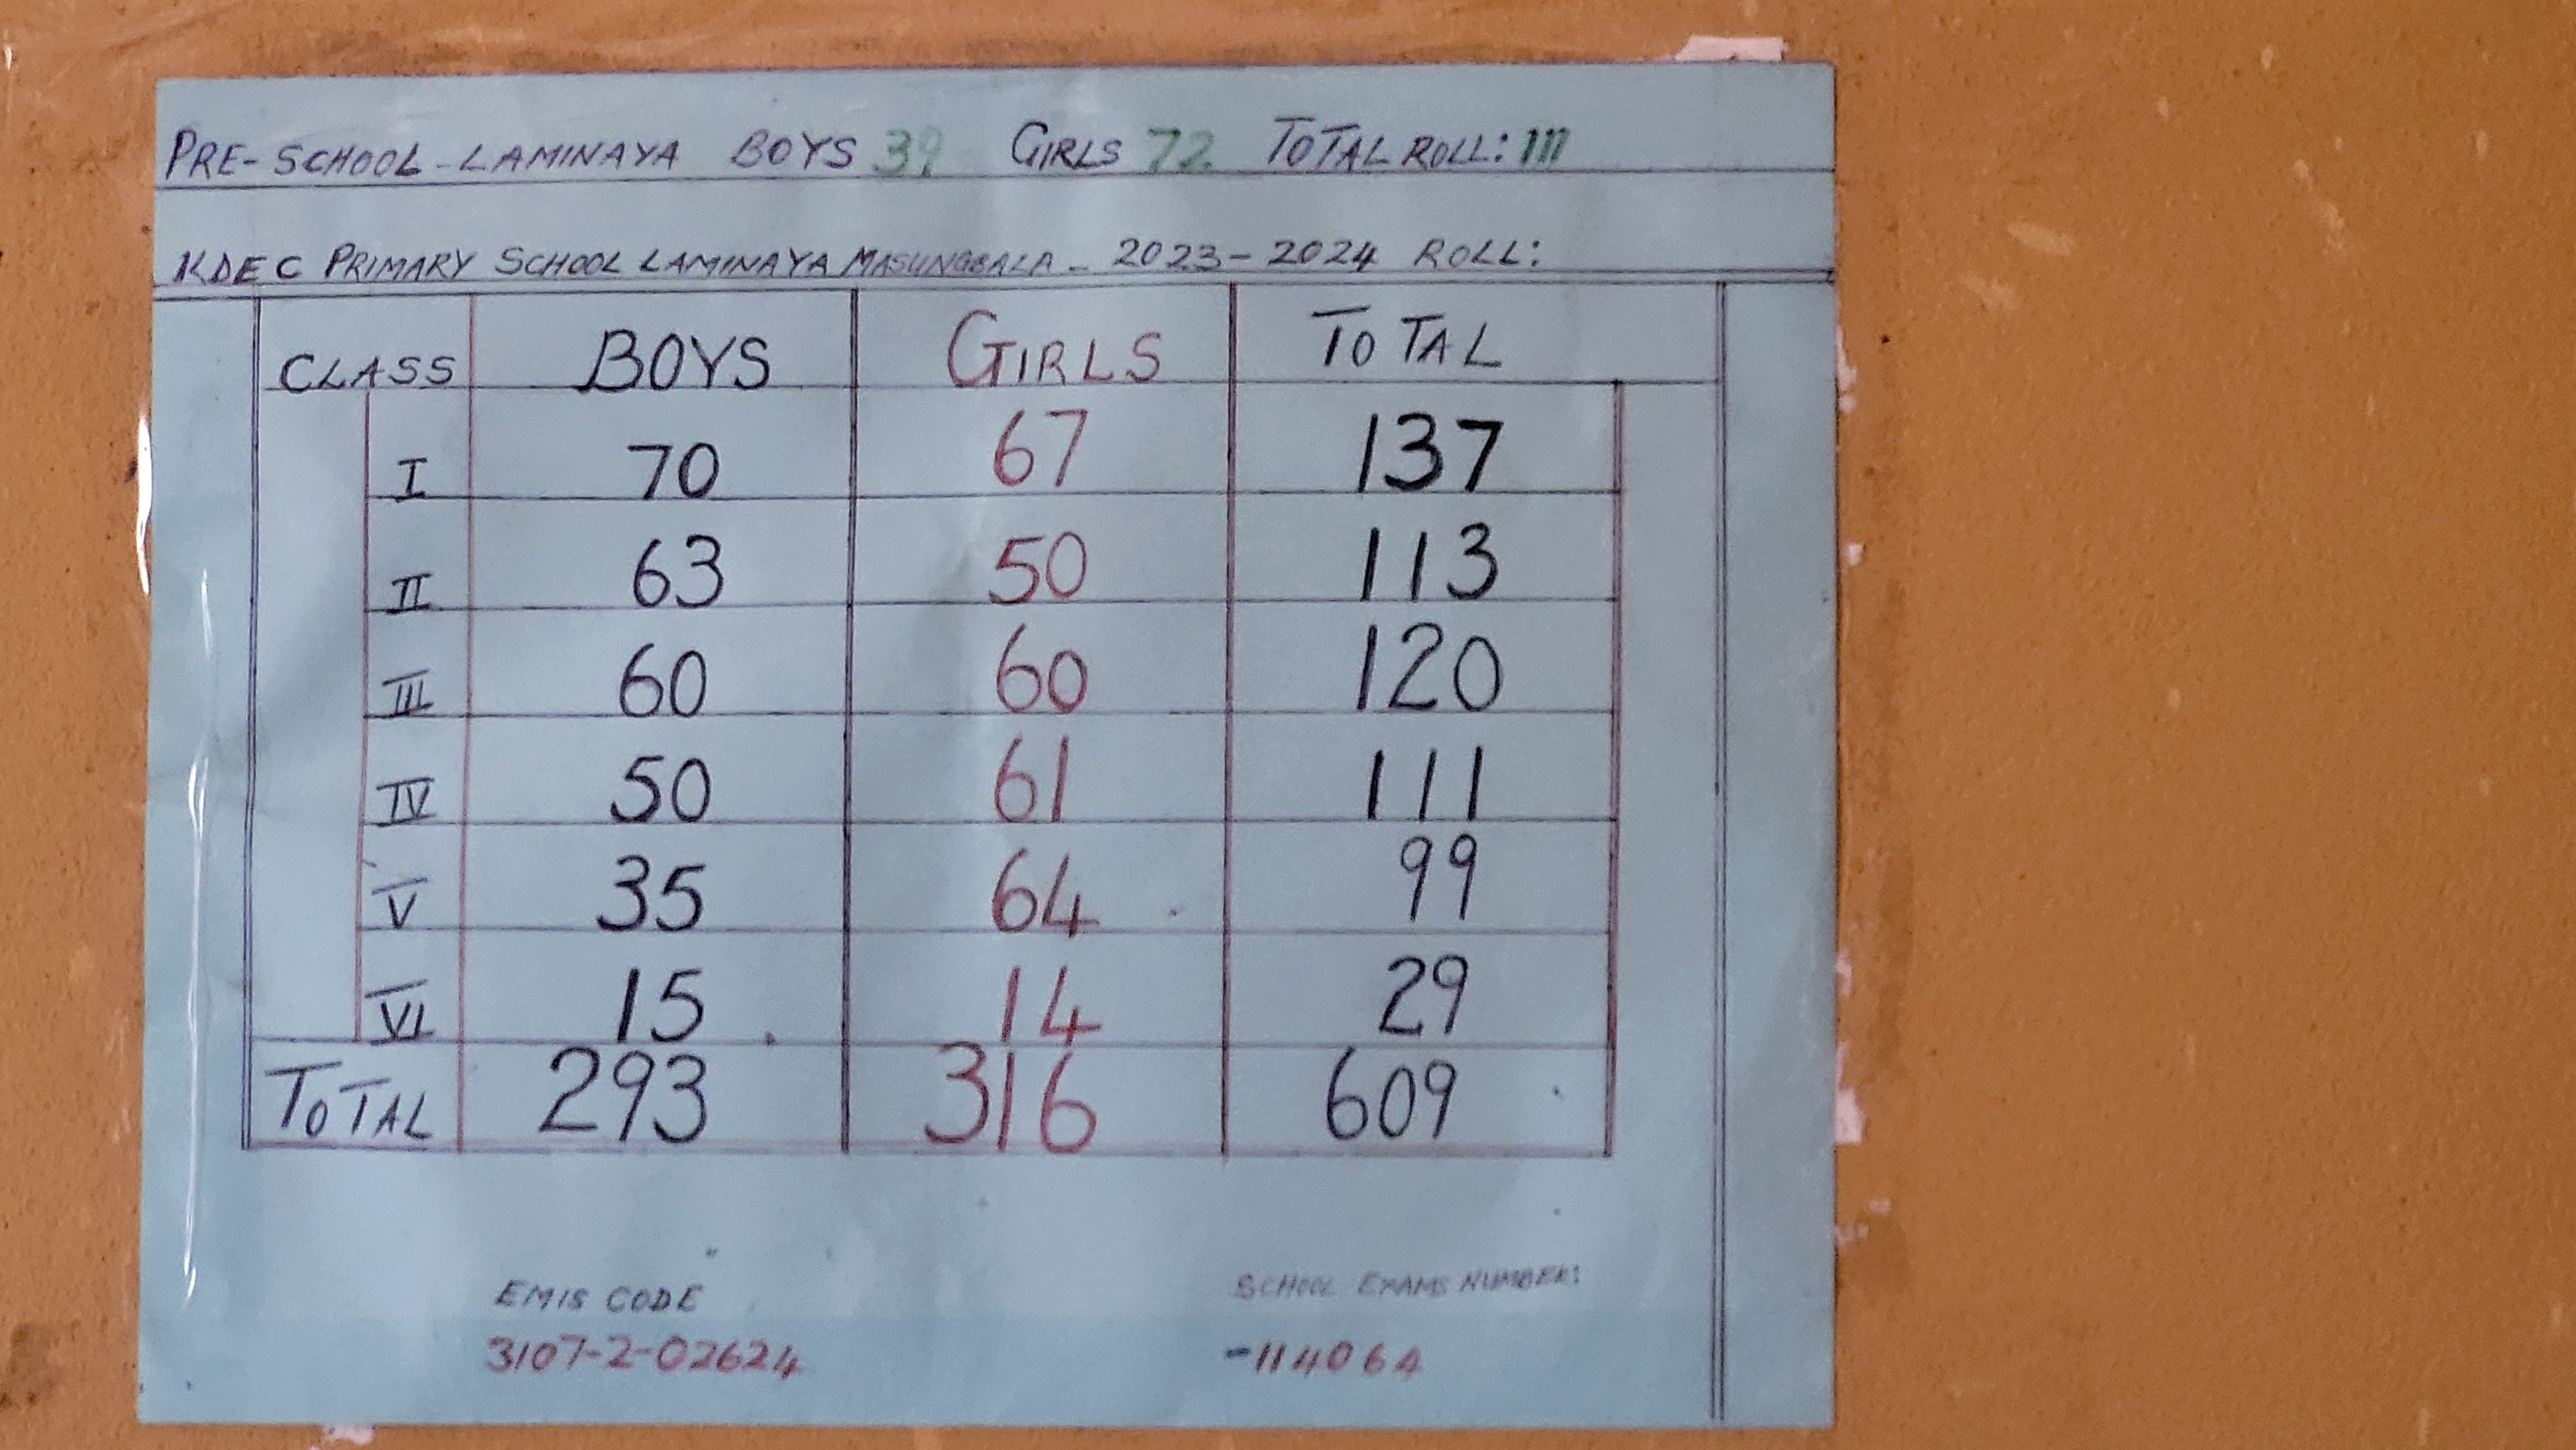 PRE-SCHOOL-LAMINAYA BOYS 39 GIRLS 72 TOTAL ROLL: 111
KDEC PRIMARY SCHOOL LAMINAYA MASUNGBALA - 2023-2024 ROLL:
CLASS BOYS GIRLS TOTAL
I 70 67 137
II 63 50 113
III 60 60 120
IV 50 61 111
V 35 64 99
VI 15 14 29
TOTAL 293 316 609
EMIS CODE SCHOOL EXAMS NUMBER:
3107-2-02624 -114064